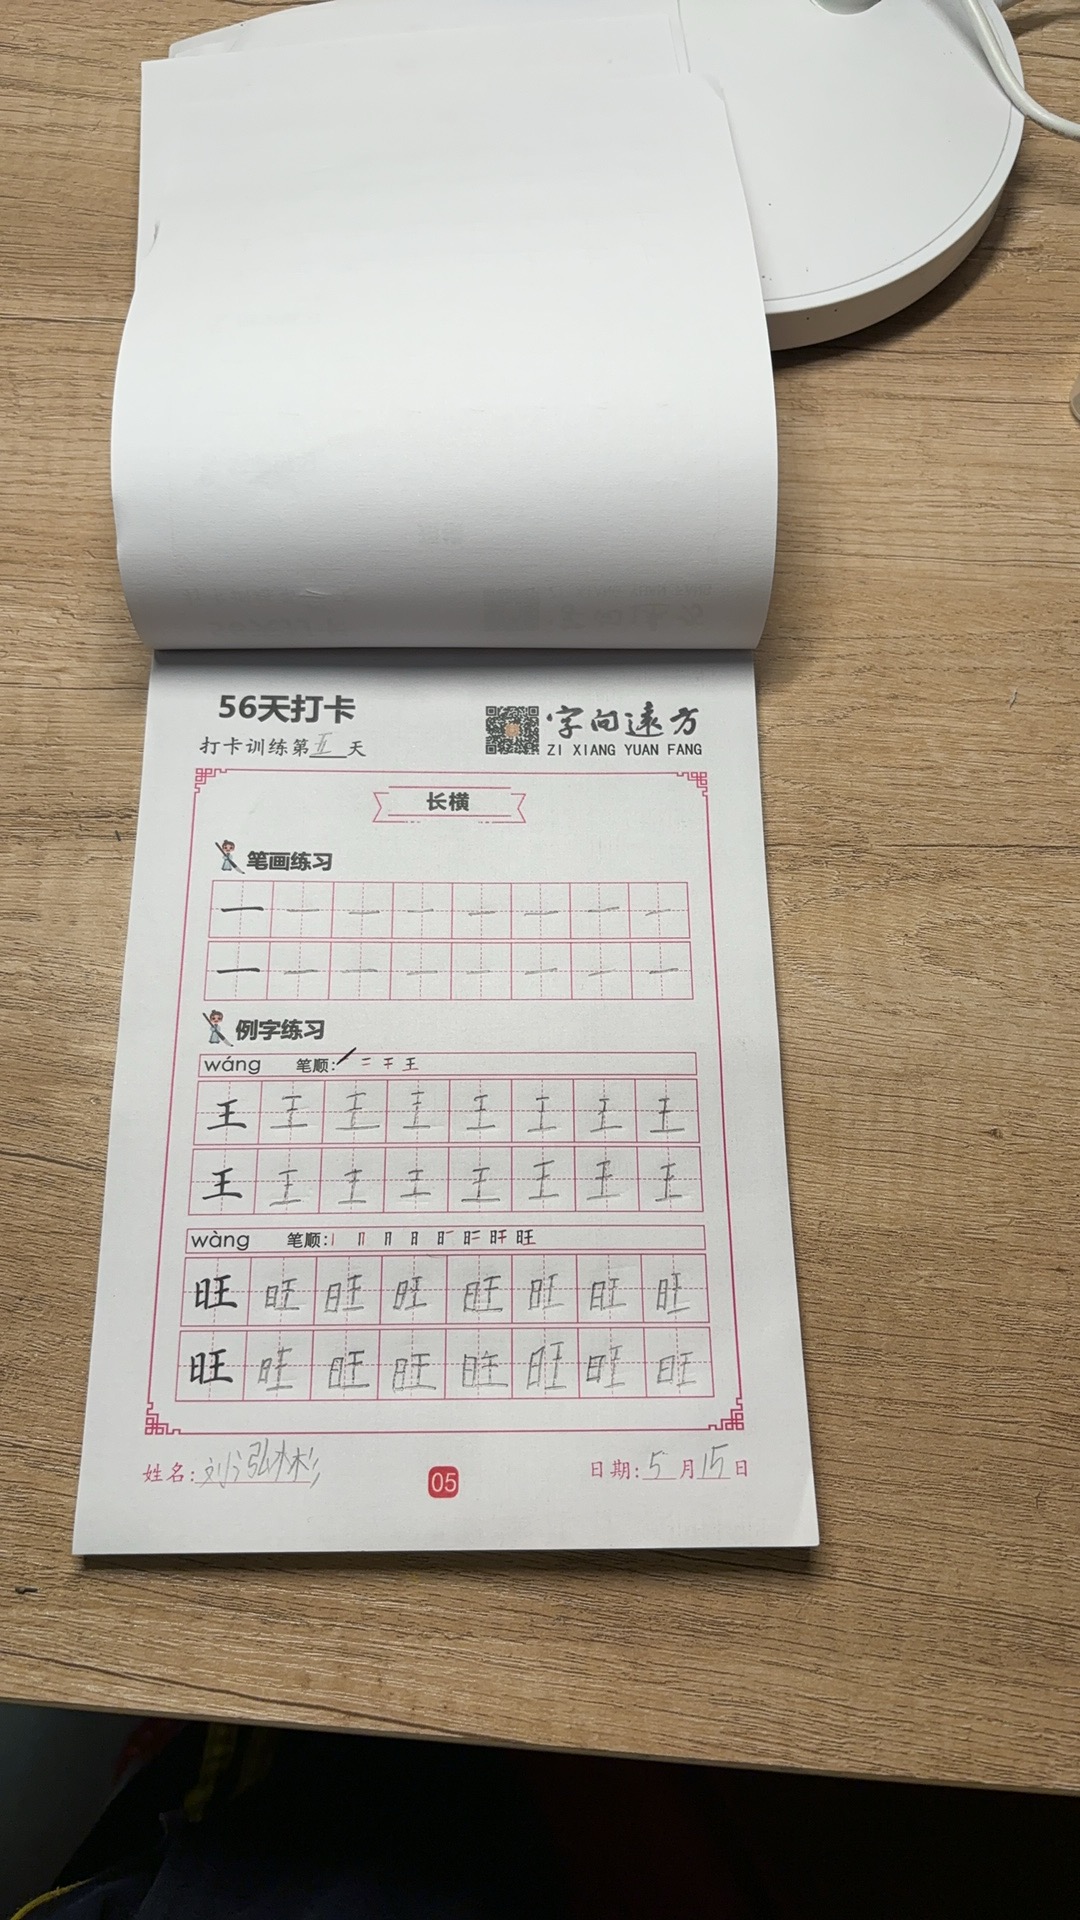 56天打卡
打卡训练第五天
字向遠方
ZI XIANG YUAN FANG
长横
笔画练习
一 一 一 一 一 一 一 一
一 一 一 一 一 一 一 一
例字练习
wáng 笔顺: 一 二 干 王
王 王 王 王 王 王 王 王
王 王 王 王 王 王 王 王
wàng 笔顺: 丨 冂 日 日 旺
旺 旺 旺 旺 旺 旺 旺 旺
旺 旺 旺 旺 旺 旺 旺 旺
姓名: 刘泓彬
05
日期: 5月15日